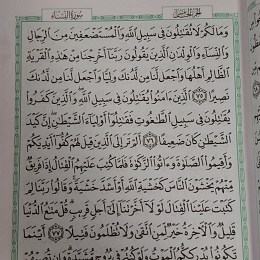 الجزء الخامس سورة النساء
وَمَا لَكُمْ لَا تُقَٰتِلُونَ فِى سَبِيلِ ٱللَّهِ وَٱلْمُسْتَضْعَفِينَ مِنَ ٱلرِّجَالِ
وَٱلنِّسَآءِ وَٱلْوِلْدَٰنِ ٱلَّذِينَ يَقُولُونَ رَبَّنَآ أَخْرِجْنَا مِنْ هَٰذِهِ ٱلْقَرْيَةِ
ٱلظَّالِمِ أَهْلُهَا وَٱجْعَل لَّنَا مِن لَّدُنكَ وَلِيًّا وَٱجْعَل لَّنَا مِن لَّدُنكَ
نَصِيرًا ٧٥ ٱلَّذِينَ ءَامَنُوا۟ يُقَٰتِلُونَ فِى سَبِيلِ ٱللَّهِ وَٱلَّذِينَ كَفَرُوا۟
يُقَٰتِلُونَ فِى سَبِيلِ ٱلطَّٰغُوتِ فَقَٰتِلُوٓا۟ أَوْلِيَآءَ ٱلشَّيْطَٰنِ إِنَّ كَيْدَ
ٱلشَّيْطَٰنِ كَانَ ضَعِيفًا ٧٦ أَلَمْ تَرَ إِلَى ٱلَّذِينَ قِيلَ لَهُمْ كُفُّوٓا۟ أَيْدِيَكُمْ
وَأَقِيمُوا۟ ٱلصَّلَوٰةَ وَءَاتُوا۟ ٱلزَّكَوٰةَ فَلَمَّا كُتِبَ عَلَيْهِمُ ٱلْقِتَالُ إِذَا فَرِيقٌ
مِّنْهُمْ يَخْشَوْنَ ٱلنَّاسَ كَخَشْيَةِ ٱللَّهِ أَوْ أَشَدَّ خَشْيَةً وَقَالُوا۟ رَبَّنَا لِمَ
كَتَبْتَ عَلَيْنَا ٱلْقِتَالَ لَوْلَآ أَخَّرْتَنَآ إِلَىٰٓ أَجَلٍ قَرِيبٍ قُلْ مَتَٰعُ ٱلدُّنْيَا
قَلِيلٌ وَٱلْءَاخِرَةُ خَيْرٌ لِّمَنِ ٱتَّقَىٰ وَلَا تُظْلَمُونَ فَتِيلًا ٧٧ أَيْنَمَا
تَكُونُوا۟ يُدْرِككُّمُ ٱلْمَوْتُ وَلَوْ كُنتُمْ فِى بُرُوجٍ مُّشَيَّدَةٍ